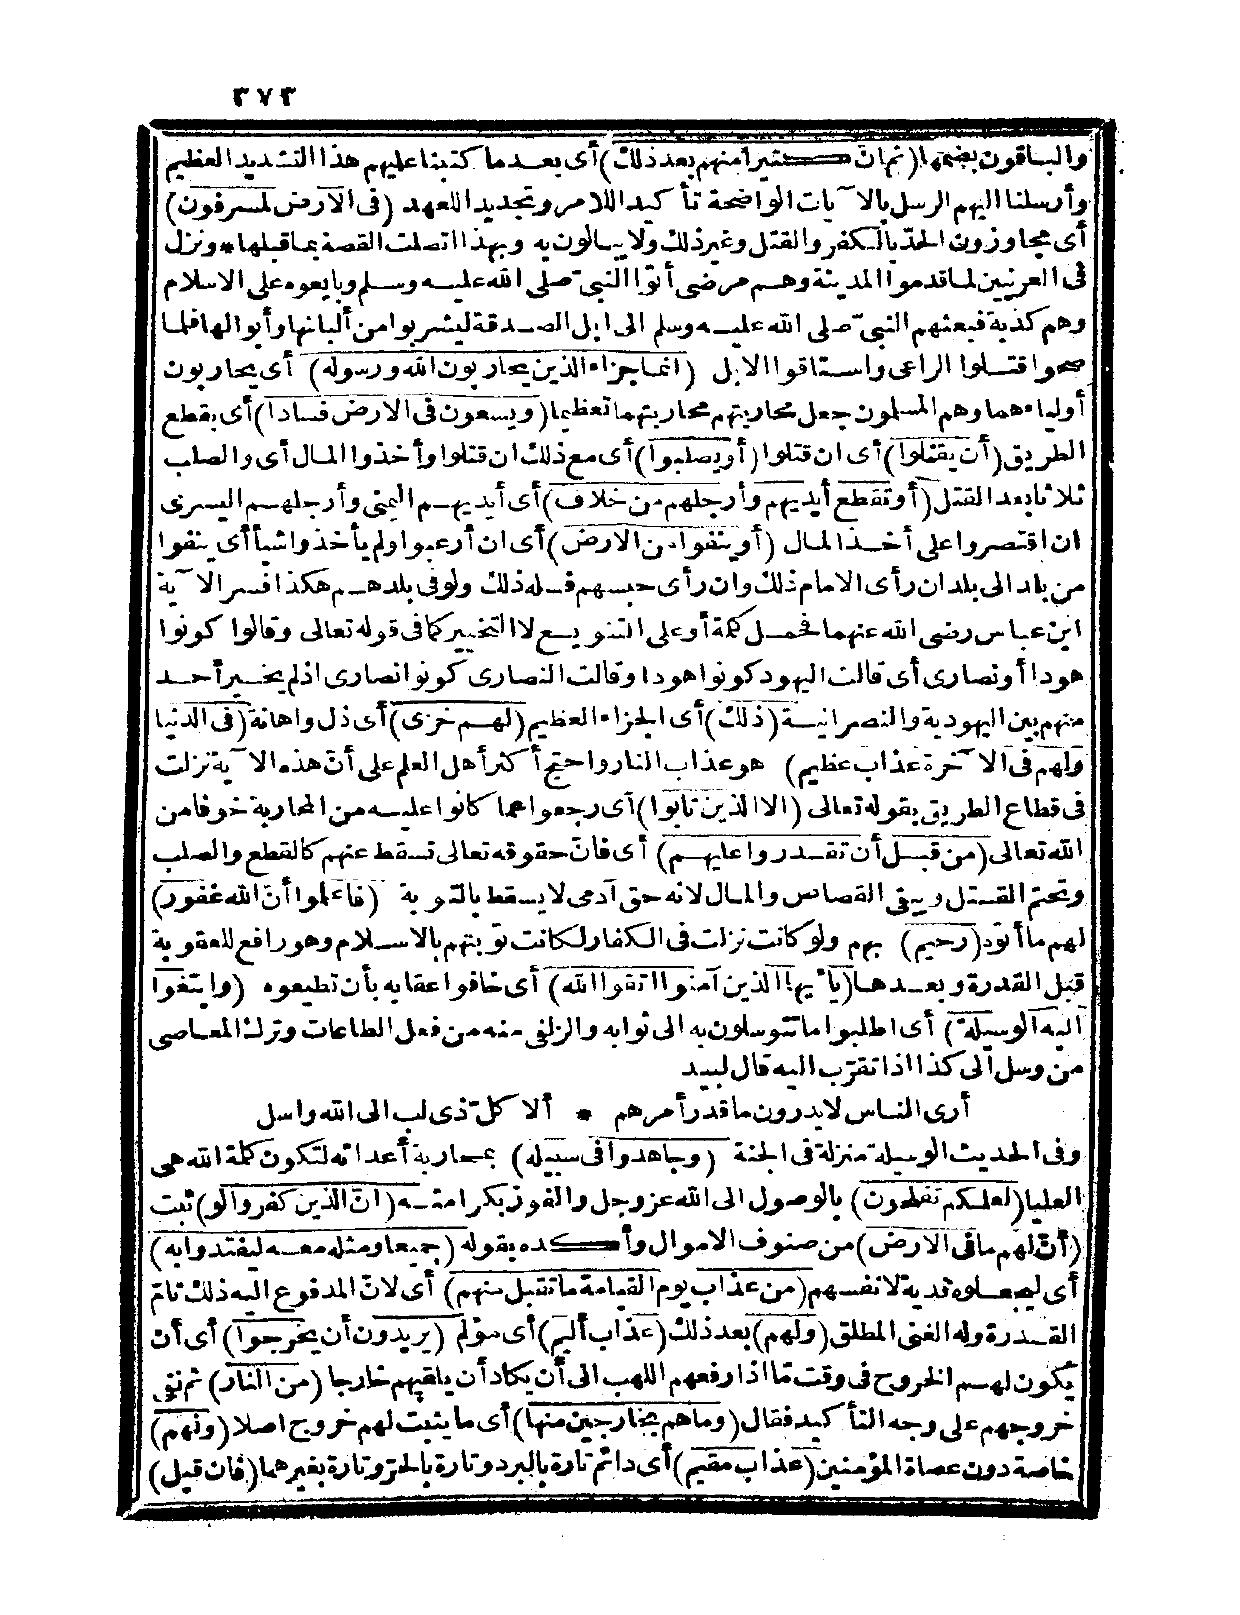 ٣٧٣
والباقون بضمها (ثم ان كثيرا منهم بعد ذلك) أى بعد ما كتبنا عليهم هذا التشديد العظيم
وأرسلنا اليهم الرسل بالآيات الواضحة تأكيد اللامر وتجديد اللعهد (فى الارض لمسرفون)
أى مجاوزون الحدّ بالكفر والقتل وغير ذلك ولا يبالون به وبهذا اتصلت القصة بما قبلها * ونزل
فى العرنيين لما قدموا المدينة وهم مرضى أتوا النبىّ صلى الله عليه وسلم وبايعوه على الاسلام
وهم كذبة فبعثهم النبىّ صلى الله عليه وسلم الى ابل الصدقة ليشربوا من ألبانها وأبوالها فلما
صحوا قتلوا الراعى واستاقوا الابل (انما جزاء الذين يحاربون الله ورسوله) أى يحاربون
أولياءهما وهم المسلمون جعل محاربتهم محاربتهما تعظيما (ويسعون فى الارض فسادا) أى بقطع
الطريق (أن يقتلوا) أى ان قتلوا (أو يصلبوا) أى مع ذلك ان قتلوا وأخذوا المال أى والصلب
ثلاثا بعد القتل (أو تقطع أيديهم وأرجلهم من خلاف) أى أيديهم اليمنى وأرجلهم اليسرى
ان اقتصروا على أخذ المال (أو ينفوا من الارض) أى ان أرعبوا ولم يأخذوا شيأ أى ينفوا
من بلد الى بلد ان رأى الامام ذلك وان رأى حبسهم فله ذلك ولو فى بلدهم هكذا فسر الآية
ابن عباس رضى الله عنهما فحمل كلمة أو على التنويع لا التخيير كما فى قوله تعالى وقالوا كونوا
هودا أو نصارى أى قالت اليهود كونوا هودا وقالت النصارى كونوا نصارى اذ لم يخير أحد
منهم بين اليهودية والنصرانية (ذلك) أى الجزاء العظيم (لهم خزى) أى ذل واهانة (فى الدنيا
ولهم فى الآخرة عذاب عظيم) هو عذاب النار واحتج أكثر أهل العلم على أنّ هذه الآية نزلت
فى قطاع الطريق بقوله تعالى (الا الذين تابوا) أى رجعوا عما كانوا عليه من المحاربة خوفا من
الله تعالى (من قبل أن تقدروا عليهم) أى فانّ حقوقه تعالى تسقط عنهم كالقطع والصلب
وتحتم القتل ويبقى القصاص والمال لانه حق آدمى لا يسقط بالتوبة (فاعلموا أنّ الله غفور)
لهم ما أتوه (رحيم) بهم ولو كانت نزلت فى الكفار لكانت توبتهم بالاسلام وهو رافع للعقوبة
قبل القدرة وبعدها (يا أيها الذين آمنوا اتقوا الله) أى خافوا عقابه بأن تطيعوه (وابتغوا
اليه الوسيلة) أى اطلبوا ما تتوسلون به الى ثوابه والزلفى منه من فعل الطاعات وترك المعاصى
من وسل الى كذا اذا تقرّب اليه قال لبيد
أرى الناس لا يدرون ما قدر أمرهم * ألا كلّ ذى لب الى الله واسل
وفى الحديث الوسيلة منزلة فى الجنة (وجاهدوا فى سبيله) بمحاربة أعدائه لتكون كلمة الله هى
العليا (لعلكم تفلحون) بالوصول الى الله عز وجل والفوز بكرامته (انّ الذين كفروا لو) ثبت
(أنّ لهم ما فى الارض) من صنوف الاموال وأكده بقوله (جميعا ومثله معه ليفتدوا به)
أى ليجعلوه فدية لانفسهم (من عذاب يوم القيامة ما تقبل منهم) أى لانّ المدفوع اليه ذلك تامّ
القدرة وله الغنى المطلق (ولهم) بعد ذلك (عذاب أليم) أى مؤلم (يريدون أن يخرجوا) أى أن
يكون لهم الخروج فى وقت مّا اذا رفعهم اللهب الى أن يكاد أن يلقيهم خارجا (من النار) ثم نفى
خروجهم على وجه التأكيد فقال (وما هم بخارجين منها) أى ما يثبت لهم خروج اصلا (ولهم)
خاصة دون عصاة المؤمنين (عذاب مقيم) أى دائم تارة بالبرد وتارة بالحرّ وتارة بغيرهما (فان قيل)